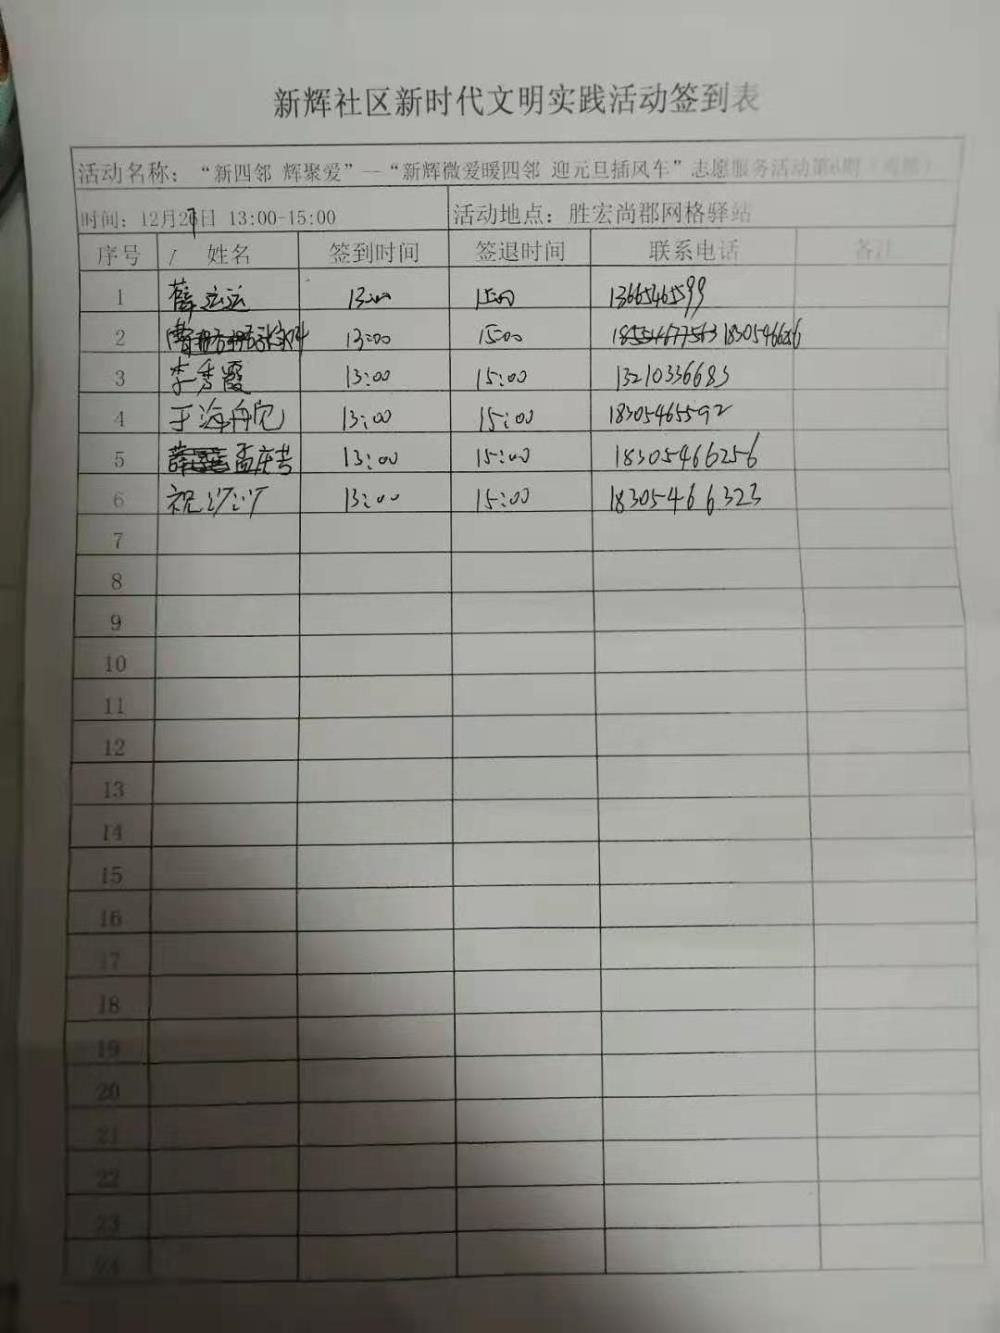 新辉社区新时代文明实践活动签到表
活动名称：“新四邻 辉聚爱”—“新辉微爱暖四邻 迎元旦插风车”志愿服务活动第6期
时间：12月27日 13:00-15:00 活动地点：胜宏尚郡网格驿站
序号 姓名 签到时间 签退时间 联系电话 备注
1 薛运运 13:00 15:00 13665465599
2 13:00 15:00 18305466286
3 李秀霞 13:00 15:00 13210336683
4 于海舟 13:00 15:00 18305465592
5 孟庆芸 13:00 15:00 18305466256
6 祝 13:00 15:00 18305466323
7
8
9
10
11
12
13
14
15
16
17
18
19
20
21
22
23
24